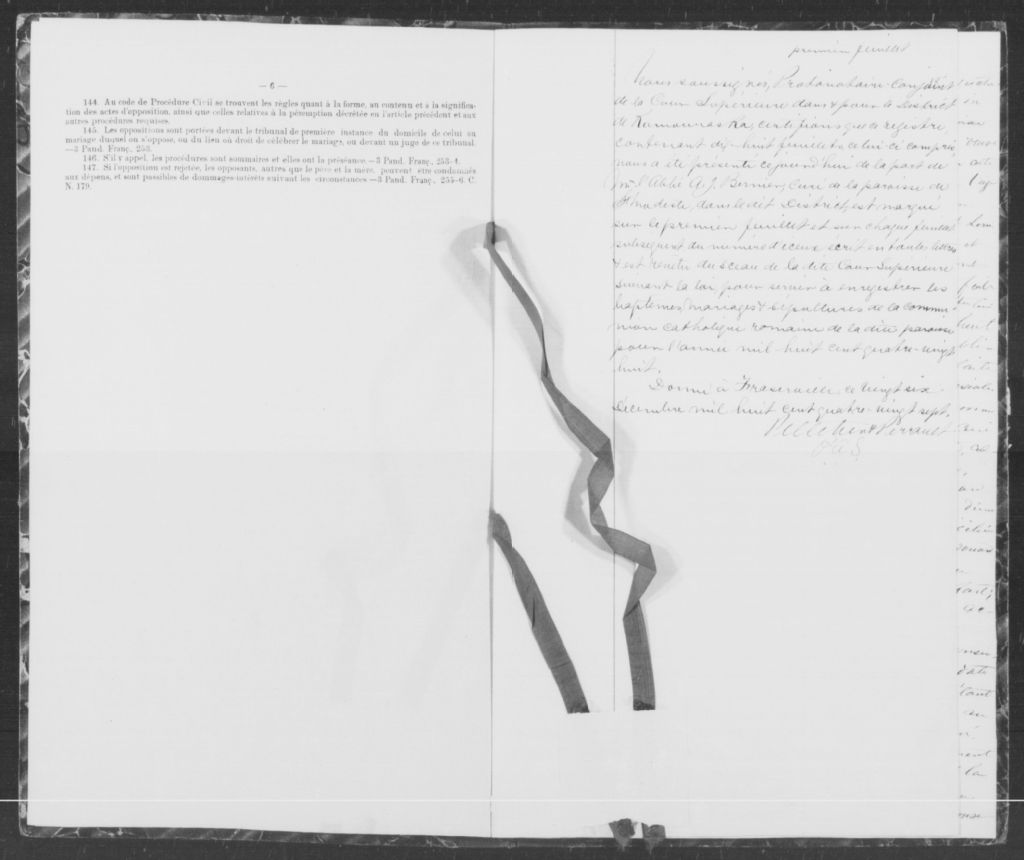 — 6 —
144. Au code de Procédure Civil se trouvent les règles quant à la forme, au contenu et à la significa-
tion des actes d'opposition, ainsi que celles relatives à la péremption décrétée en l'article précédent et aux
autres procédures requises.
145. Les oppositions sont portées devant le tribunal de première instance du domicile de celui au
mariage duquel on s'oppose, ou du lieu où droit de célébrer le mariage, ou devant un juge de ce tribunal.
—3 Pand. Franç. 253.
146. S'il y appel, les procédures sont sommaires et elles ont la préséance.—3 Pand. Franç., 253-4.
147. Si l'opposition est rejetée, les opposants, autres que le père et la mère, peuvent être condamnés
aux dépens, et sont passibles de dommages-intérêts suivant les circonstances.—3 Pand. Franç., 255-6. C.
N. 179.
premier feuillet
Nous soussignés, Protonotaire-Conjoint
de la Cour Supérieure dans & pour le District
de Kamouraska, certifions que ce registre,
contenant dix-huit feuillets celui ci compris
nous a été présenté ce jourd'hui de la part de
Mr. l'Abbé A. J. Bernier, Curé de la paroisse de
St Modeste, dans le dit District, est marqué
sur le premier feuillet et sur chaque feuillet
subséquent du numéro d'iceux écrit en toutes lettres
& est revêtu du sceau de la dite Cour Supérieure
suivant la loi, pour servir à enregistrer les
baptêmes, mariages & sépultures de la commu-
nion catholique romaine de la dite paroisse
pour l'année mil huit cent quatre-vingt
huit.
Donné à Fraserville ce vingt six
Décembre mil huit cent quatre-vingt sept.
Pelletier & Perrault
P.C.S.